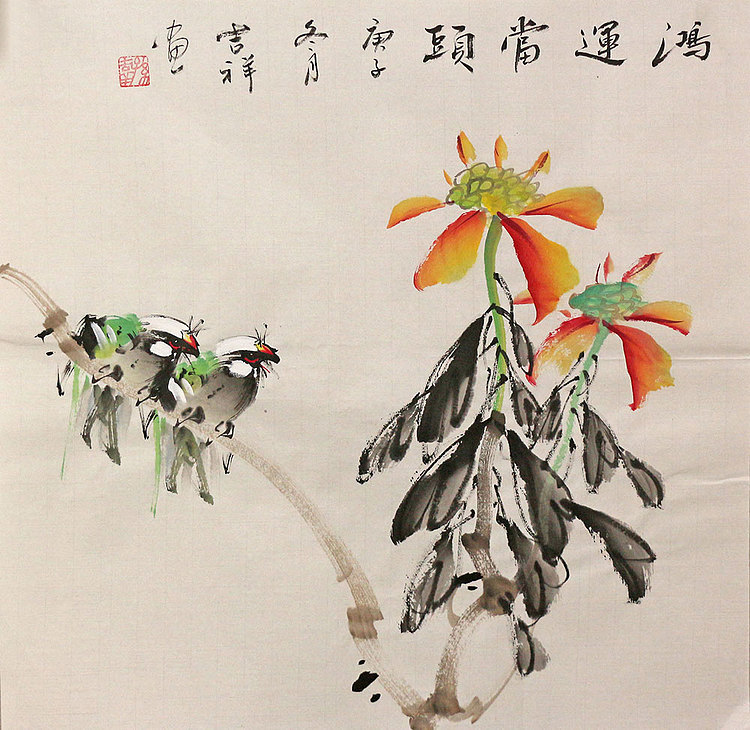 鴻運當頭庚子冬月吉祥画